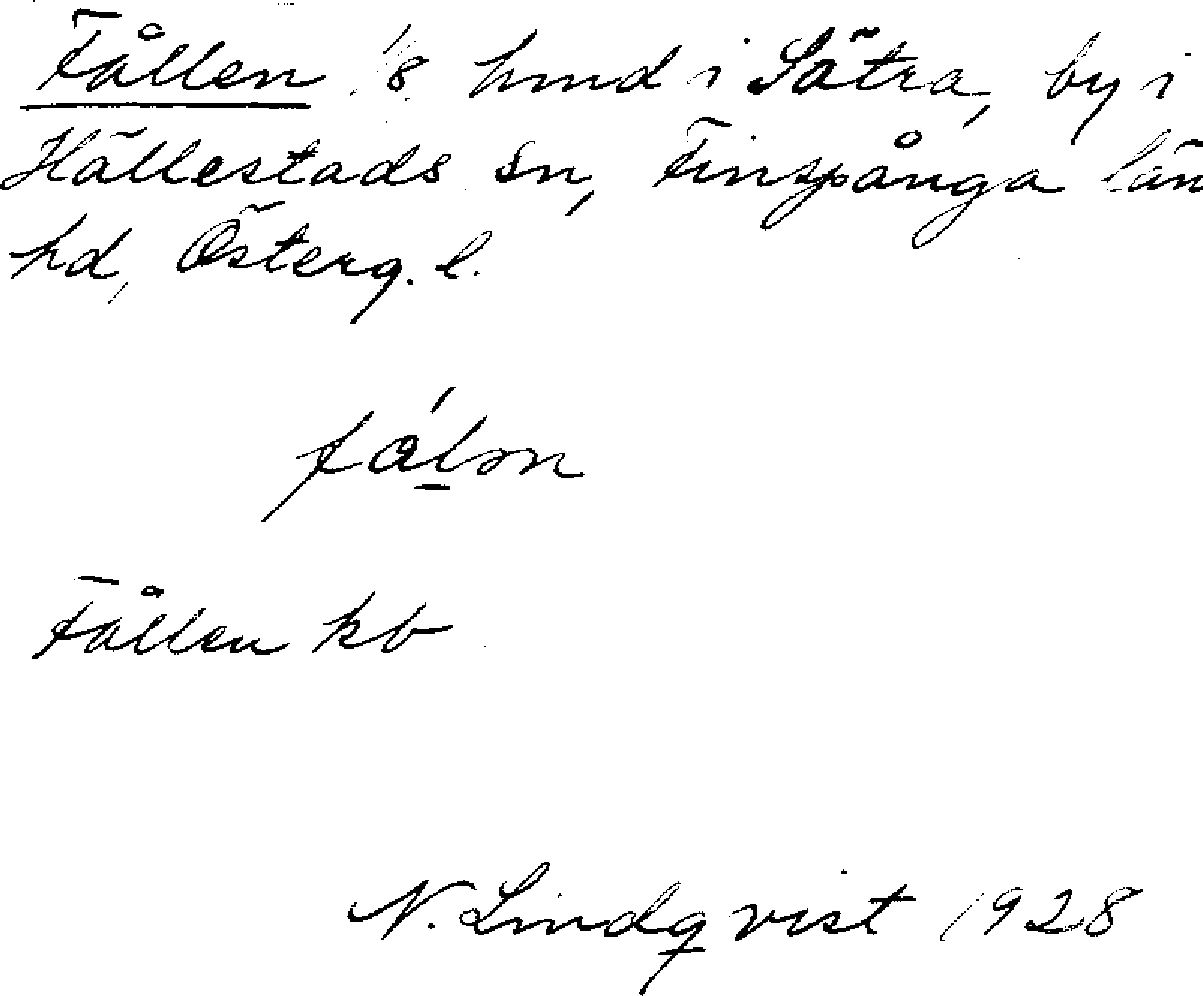 Fållen 1/8 hmd i Sätra, by i
Hällestads sn, Finspånga län
hd, Österg. l.
fǻl̠ən
Fållen kb
N. Lindqvist 1928